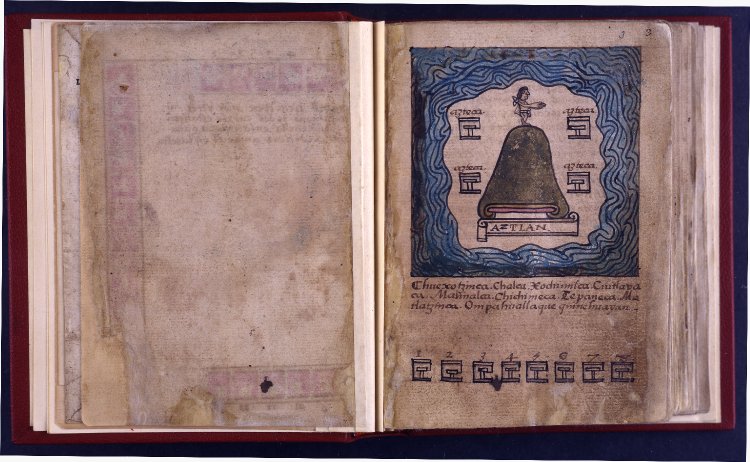 3 3
azteca. azteca.
azteca. azteca.
AZTLAN
Chuexotzinca. Chalca. Xochimilca. Cuitlava
ca. Malinalca. Chichimeca. Tepaneca. Ma
tlatzinca. Ompahuallaque quinehuayan.
1 2 3 4 5 6 7 8